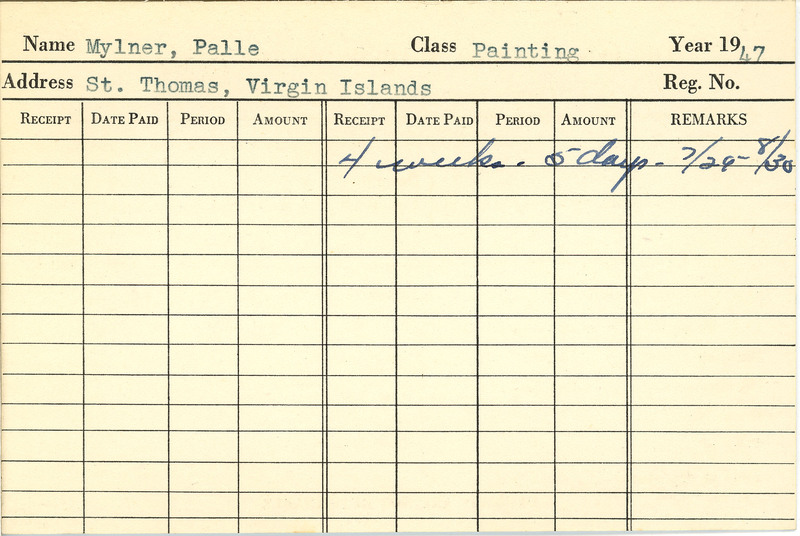 Name Mylner, Palle Class Painting Year 1947
Address St. Thomas, Virgin Islands Reg. No.
RECEIPT DATE PAID PERIOD AMOUNT RECEIPT DATE PAID PERIOD AMOUNT REMARKS
4 weeks. 5 days - 7/29 - 8/30